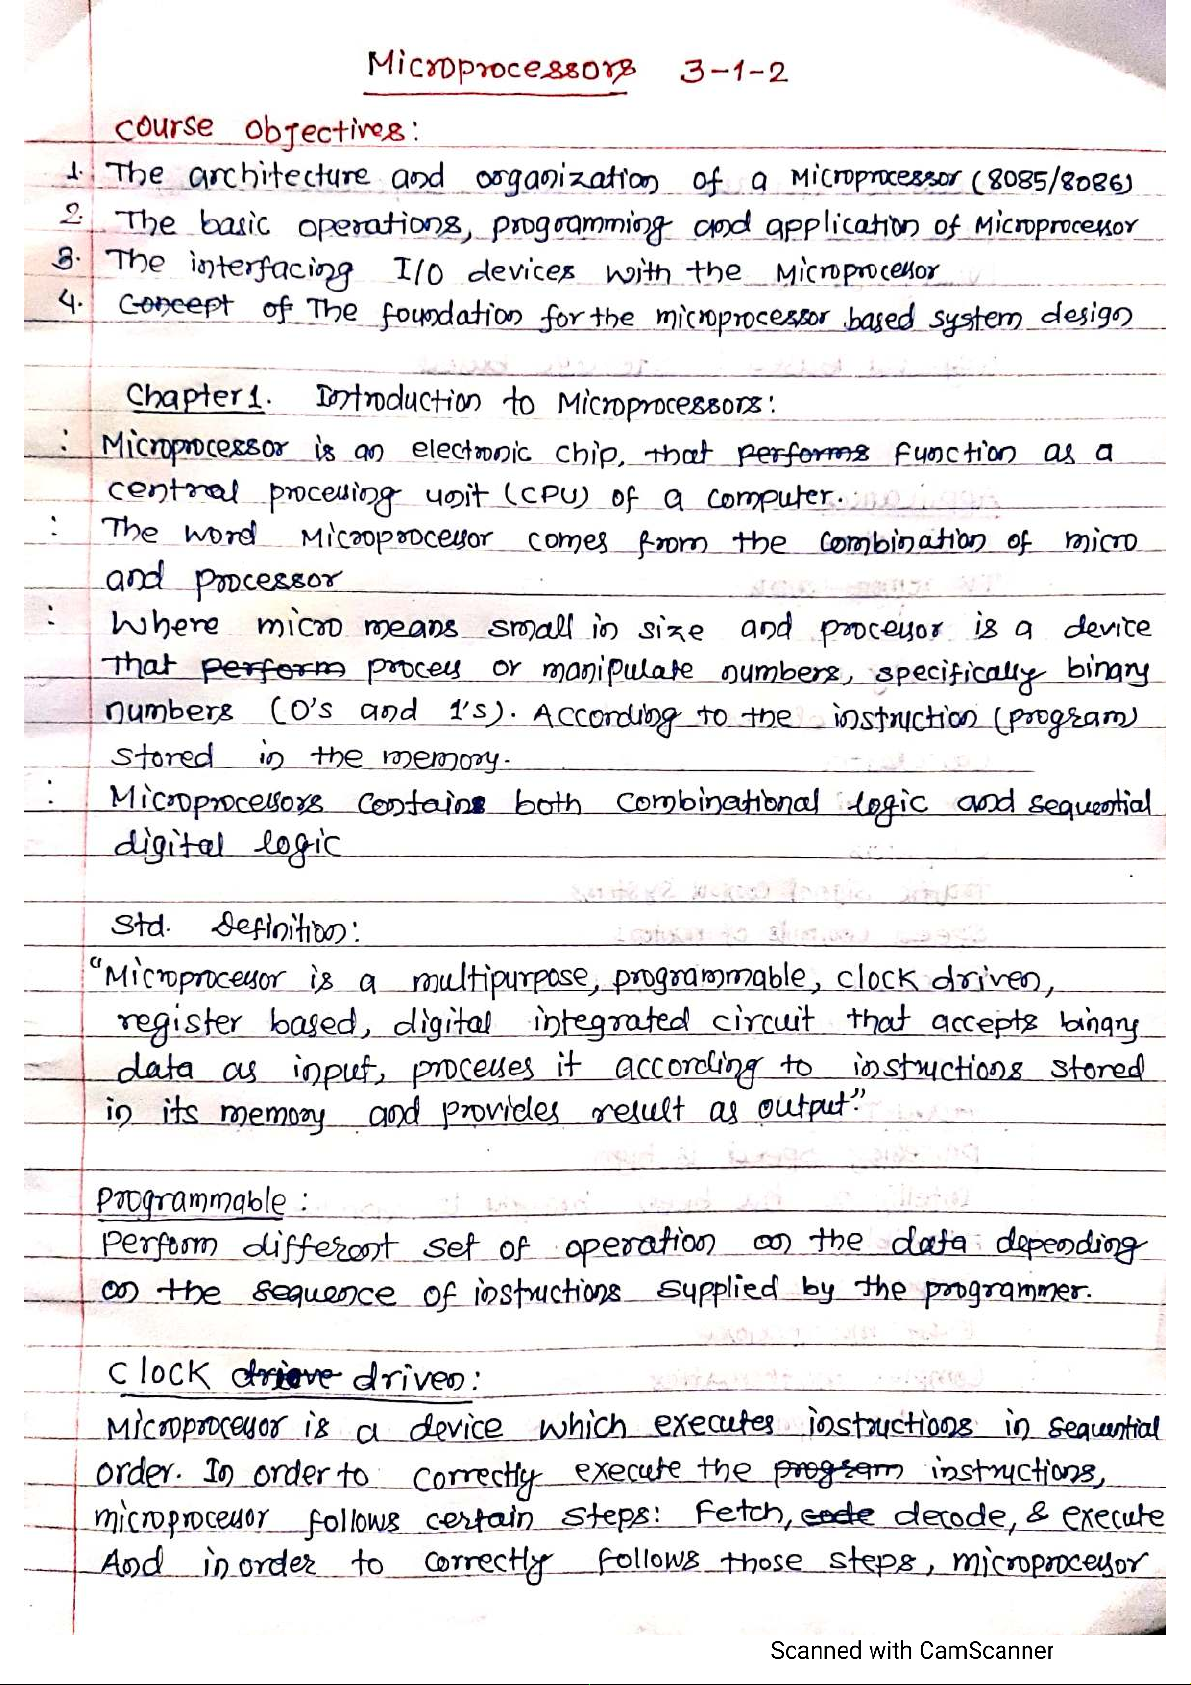 Microprocessors 3-1-2
Course Objectives:
1. The architecture and organization of a Microprocessor (8085/8086)
2. The basic operations, programming and application of Microprocessor
3. The interfacing I/O devices with the Microprocessor
4. Concept of The foundation for the microprocessor based system design
Chapter 1. Introduction to Microprocessors:
: Microprocessor is an electronic chip, that performs function as a
central processing unit (CPU) of a computer.
: The word Microprocessor comes from the combination of micro
and processor
: Where micro means small in size and processor is a device
that perform process or manipulate numbers, specifically binary
numbers (0's and 1's). According to the instruction (program)
stored in the memory.
: Microprocessors contains both combinational logic and sequential
digital logic
Std. Definition:
"Microprocessor is a multipurpose, programmable, clock driven,
register based, digital integrated circuit that accepts binary
data as input, processes it according to instructions stored
in its memory and provides result as output."
Programmable:
Perform different set of operation on the data depending
on the sequence of instructions supplied by the programmer.
Clock drieve driven:
Microprocessor is a device which executes instructions in sequential
order. In order to correctly execute the program instructions,
microprocessor follows certain steps: Fetch, code decode, & execute
And in order to correctly follows those steps, microprocessor
Scanned with CamScanner